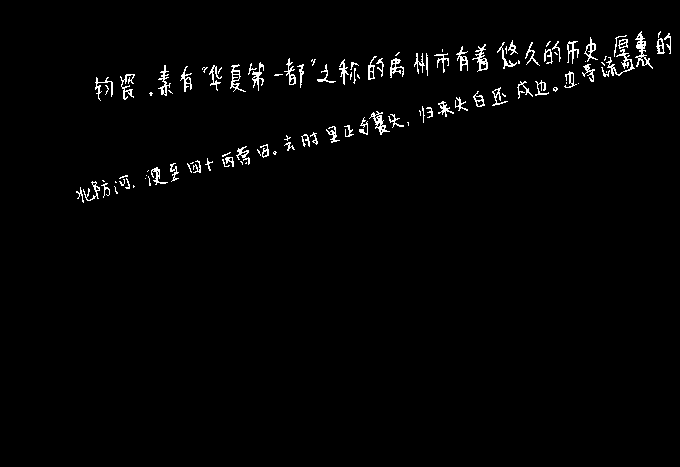 钧瓷.素有“华夏第一都”之称的禹州市有着悠久的历史、厚重的
北防河,便至四十西营田。去时里正与裹头,归来头白还戍边。边亭流血成